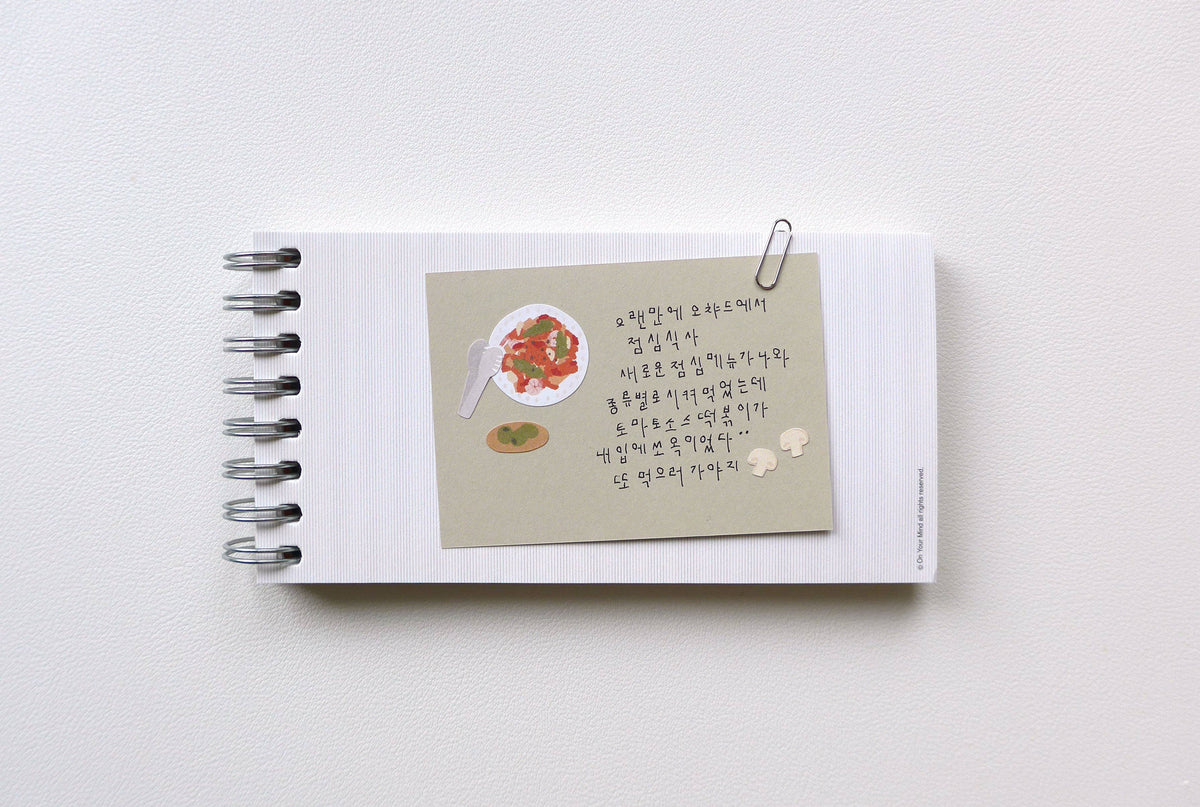 오랜만에 오챠드에서
점심식사
새로운 점심메뉴가 나와
종류별로 시켜 먹었는데
토마토소스떡볶이가
내입에 쏘옥이었다
또 먹으러 가야지
© On Your Mind all rights reserved.